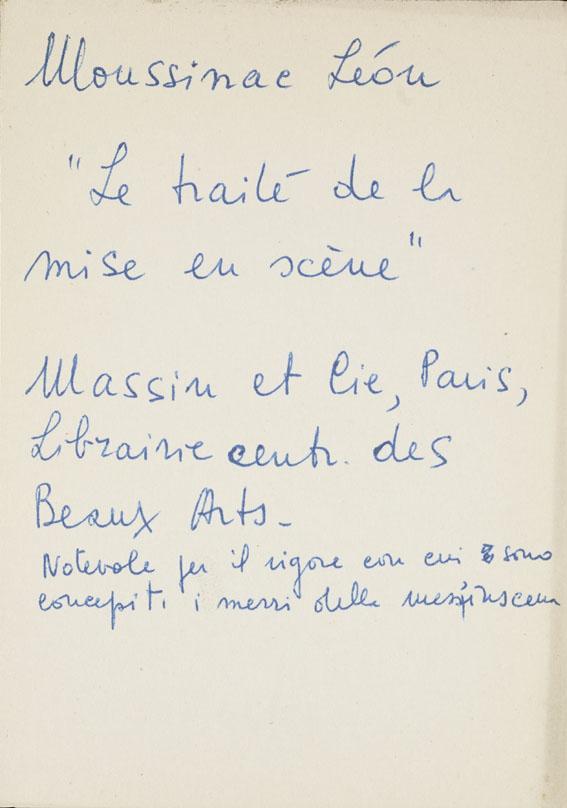 Moussinac Léón
"Le traité de la
mise en scène"
Massin et Cie, Paris,
Librairie centr. des
Beaux Arts.
Notevole per il rigore con cui sono
concepiti i mezzi della messinscena